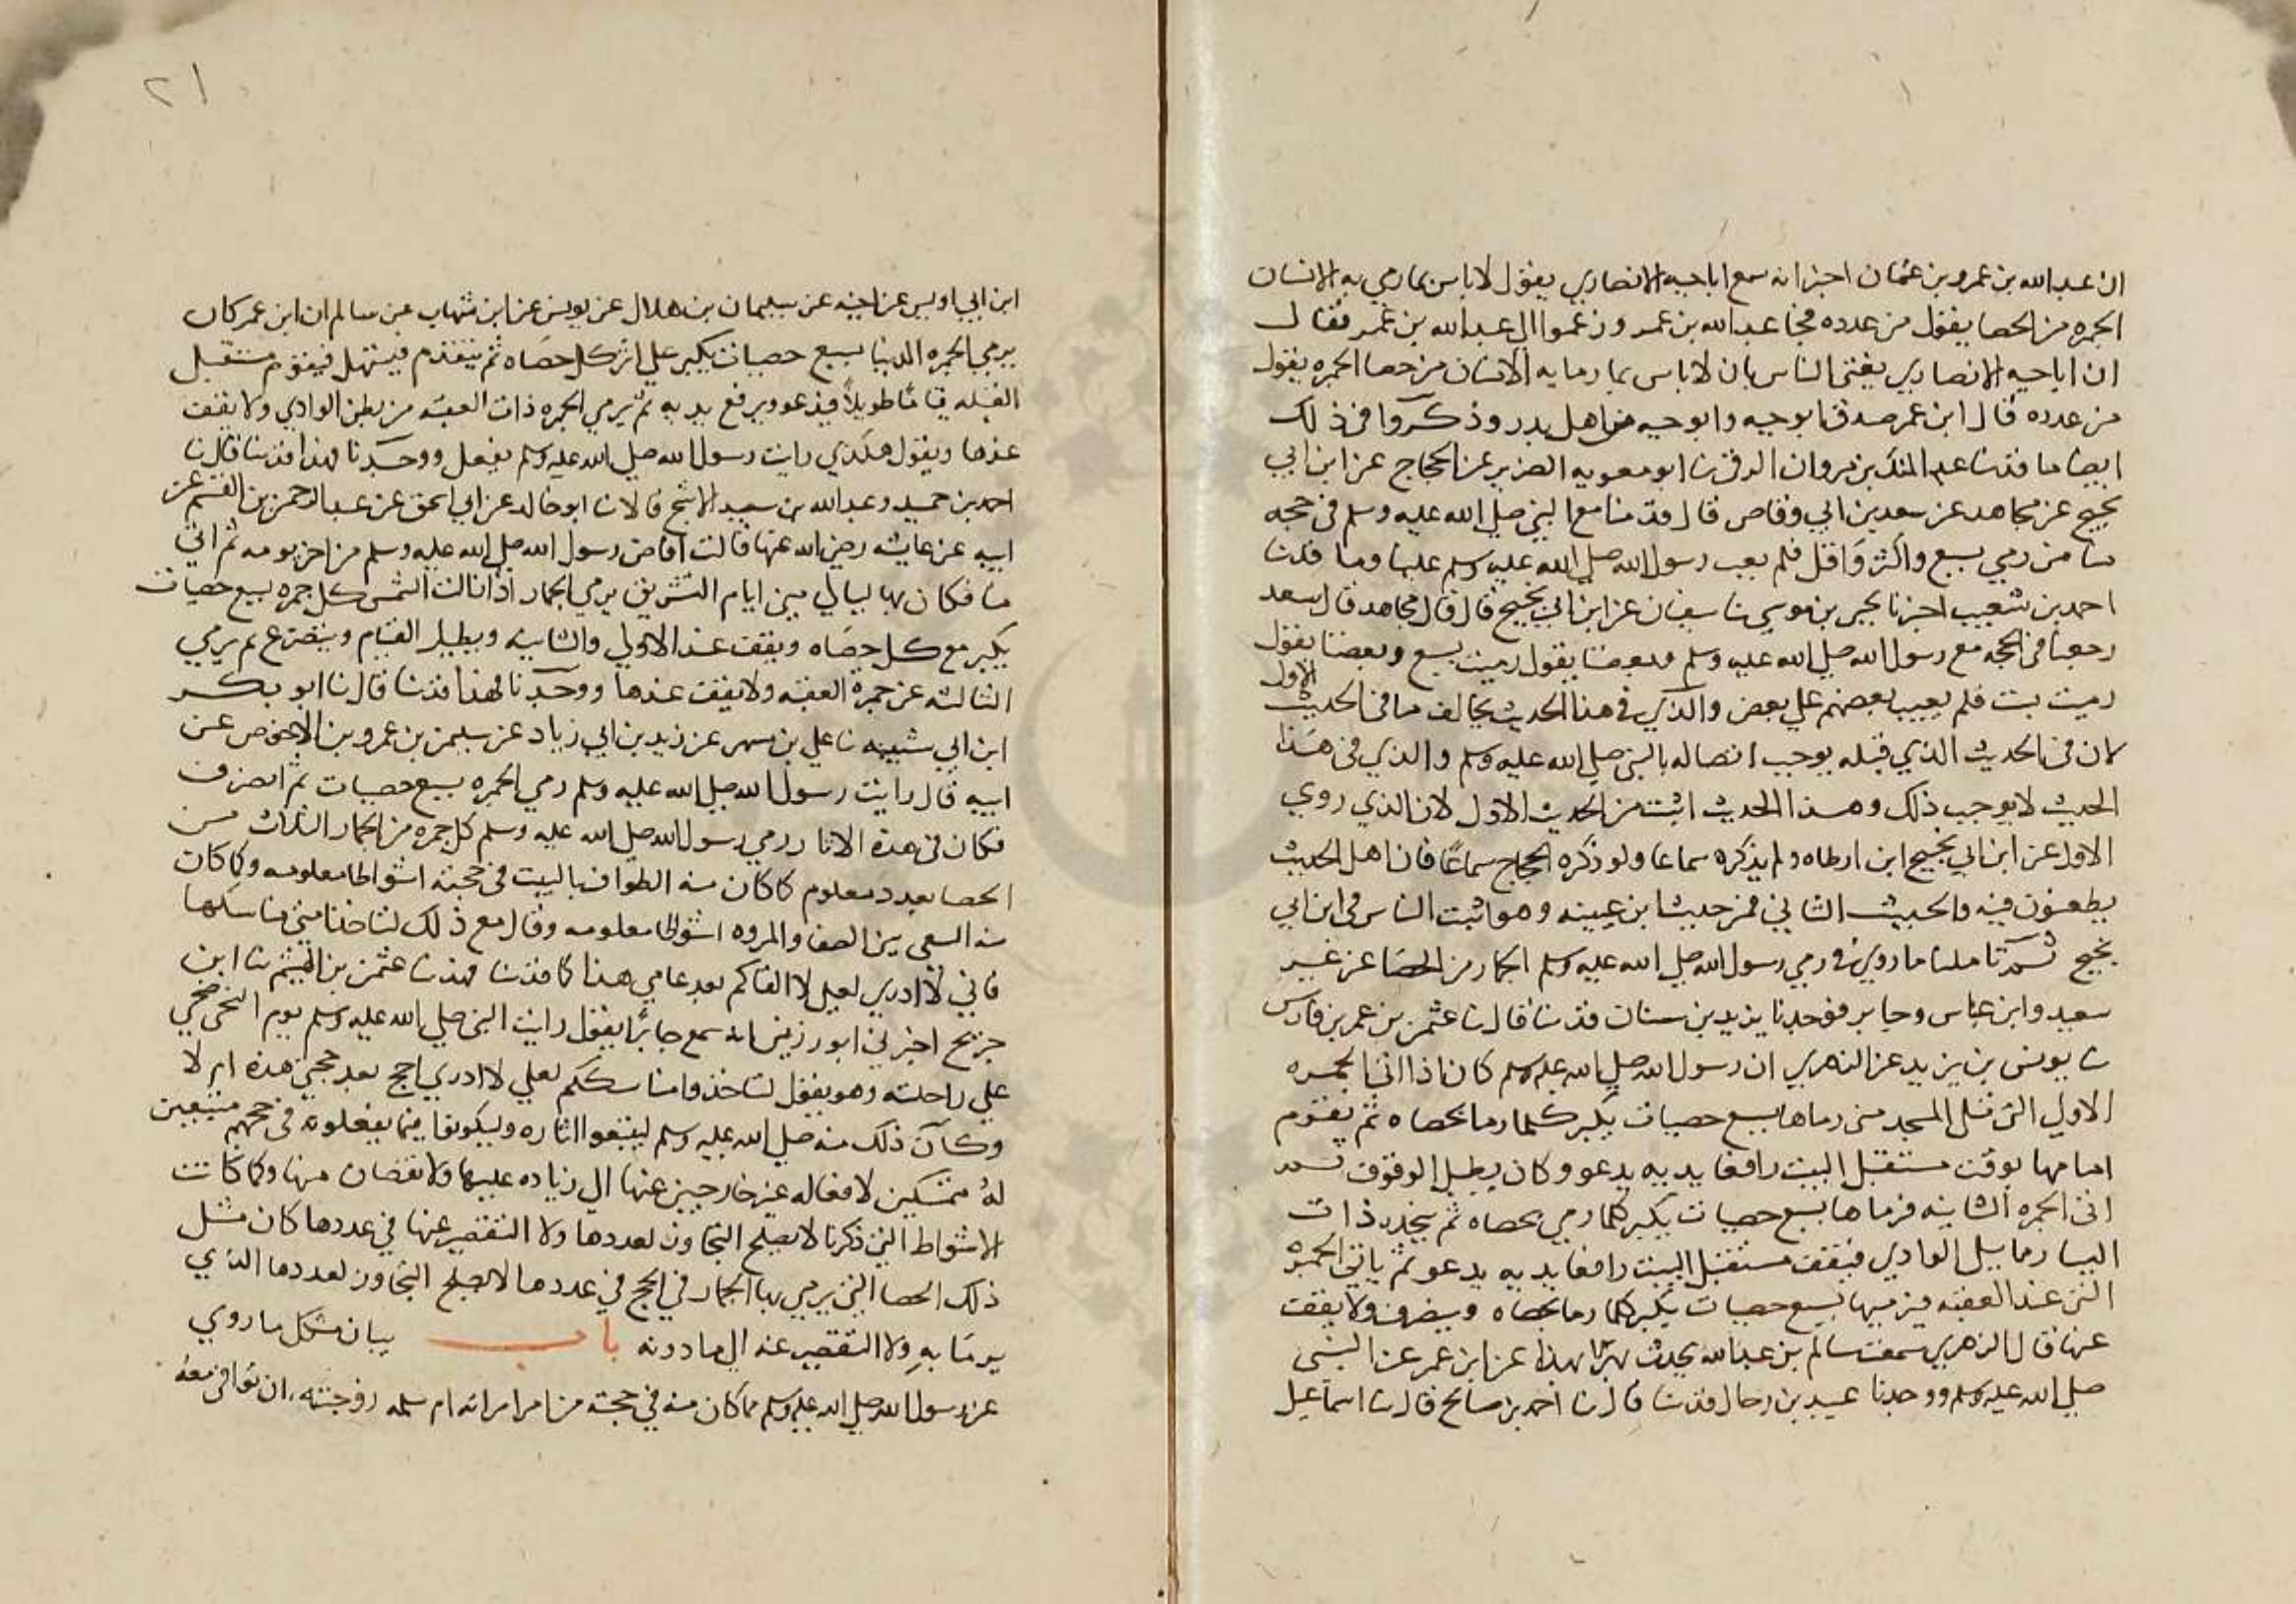 ان عبد الله بن عمرو بن عثمان اخبر انه سمع اباحيه الانصاري يقول لا باس بما رمي به الانسان
الجمره من الحصا يقول من عدده فجا عبد الله بن عمرو زعموا الي عبد الله بن عمر فقال
ان اباحيه الانصاري يفتي الناس بان لا باس بما رما به الانسان من حصا الجمره يقول
من عدده قال ابن عمر صدق ابو حيه وابو حيه من اهل بدر وذكروا في ذلك
ايضا ما حدثنا عبد الملك بن مروان الرقي نا ابو معويه الضرير عن الحجاج عن ابن ابي
نجيح عن مجاهد عن سعد بن ابي وقاص قال قدمنا مع النبي صلي الله عليه وسلم في حجه
منا من رمي بسبع واكثر واقل فلم يعب رسول الله صلي الله عليه وسلم علينا وما حدثنا
احمد بن شعيب اخبرنا يحيي بن موسي نا سفيان عن ابن ابي نجيح قال قال مجاهد قال سعد
رجعنا في الحجه مع رسول الله صلي الله عليه وسلم وبعضنا يقول رميت بسبع وبعضنا يقول
رميت بست فلم يعيب بعضهم علي بعض والذي في هذا الحديث يخالف ما في الحديث الاول
لان في الحديث الذي قبله يوجب اتصاله بالنبي صلي الله عليه وسلم والذي في هذا
الحديث لا يوجب ذلك وهذا الحديث اثبت من الحديث الاول لان الذي روي
الاول عن ابن ابي نجيح ابن ارطاه ولم يذكره سماعا ولو ذكره الحجاج سماعا فان اهل الحديث
يطعنون فيه والحديث الثاني فمن حديث ابن عيينه وهو اثبت الناس في ابن ابي
نجيح ثم تاملنا ما روي في رمي رسول الله صلي الله عليه وسلم الجمار من الحصا عن غير
سعد وابن عباس وجابر فوجدنا يزيد بن سنان حدثنا قال نا عثمن بن عمر بن فارس
نا يونس بن يزيد عن الزهري ان رسول الله صلي الله عليه وسلم كان اذا اتي الجمره
الاولي التي تلي المسجد مني رماها بسبع حصيات يكبر كلما رما بحصاه ثم يقوم
امامها يوقف مستقبل البيت رافعا يديه يدعو وكان يطيل الوقوف ثم
اتي الجمره الثانيه فرماها بسبع حصيات يكبر كلما رمي بحصاه ثم ينحدر ذات
اليسار مما يلي الوادي فيقف مستقبل البيت رافعا يديه يدعو ثم ياتي الجمره
التي عند العقبه فيرميها بسبع حصيات يكبر كلما رما بحصاه وينصرف ولا يقف
عنها قال الزهري سمعت سالم بن عبد الله يحدث بهذا عن ابن عمر عن النبي
صلي الله عليه وسلم ووجدنا عبيد بن رحال حدثنا قال نا احمد بن صالح قال نا اسماعيل
٢١
ابن ابي اويس عن اخيه عن سليمان بن هلال عن يونس عن ابن شهاب عن سالم ان ابن عمر كان
يرمي الجمره الدنيا بسبع حصيات يكبر علي اثر كل حصاه ثم يتقدم فيستهل فيقوم مستقبل
القبله قياما طويلا فيدعو ويرفع يديه ثم يرمي الجمره ذات العقبه من بطن الوادي ولا يقف
عندها ويقول هكذي رايت رسول الله صلي الله عليه وسلم يفعل ووجدنا فهذا حدثنا قال نا
احمد بن حميد وعبد الله بن سعيد الاشج قالا نا ابو خالد عن ابي اسحق عن عبد الرحمن بن القسم عن
ابيه عن عايشه رضي الله عنها قالت افاض رسول الله صلي الله عليه وسلم من اخر يومه ثم اتي
منا فكان بها ليالي مني ايام التشريق يرمي الجمار اذا زالت الشمس كل جمره بسبع حصيات
يكبر مع كل حصاه ويقف عند الاولي والثانيه ويطيل القيام ويتضرع ثم يرمي
الثالثه عن جمرة العقبه ولا يقف عندها ووجدنا فهذا حدثنا قال نا ابو بكر
ابن ابي شيبه نا علي بن مسهر عن زيد بن ابي زياد عن سليمن بن عمرو بن الاحوص عن
ابيه قال رايت رسول الله صلي الله عليه وسلم رمي الجمره بسبع حصيات ثم انصرف
فكان في هذه الاثار رمي رسول الله صلي الله عليه وسلم كل جمره من الجمار الثلاث من
الحصا بعدد معلوم كما كان منه الطواف بالبيت في حجته اشواطا معلومه وكما كان
منه السعي بين الصفا والمروه اشواطا معلومه وقال مع ذلك لتاخذ امتي مناسكها
فاني لا ادري لعلي لا القاكم بعد عامي هذا كما حدثنا فهد نا عثمن بن الهيثم نا ابن
جريج اخبرني ابو رزين انه سمع جابرا يقول رايت النبي صلي الله عليه وسلم يوم النحر ضحي
علي راحلته وهو يقول لتاخذوا مناسككم لعلي لا ادري احج بعد حجتي هذه ام لا
وكان ذلك منه صلي الله عليه وسلم ليتبعوا اثاره وليكونوا فيما يفعلونه في حجهم متبعين
له متمسكين لافعاله غير خارجين عنها الي زياده عليها ولا نقصان منها وكما كانت
الاشواط التي ذكرنا لا يصلح التجاوز لعددها ولا التقصير عنها في عددها كان مثل
ذلك الحصا التي يرمي بها الجمار في الحج في عددها لا يصلح التجاوز لعددها الذي
يرما به ولا التقصير عنه الي ما دونه باب بيان مشكل ما روي
عن رسول الله صلي الله عليه وسلم مما كان منه في حجته من امر امراته ام سلمه زوجته ان توافي معه